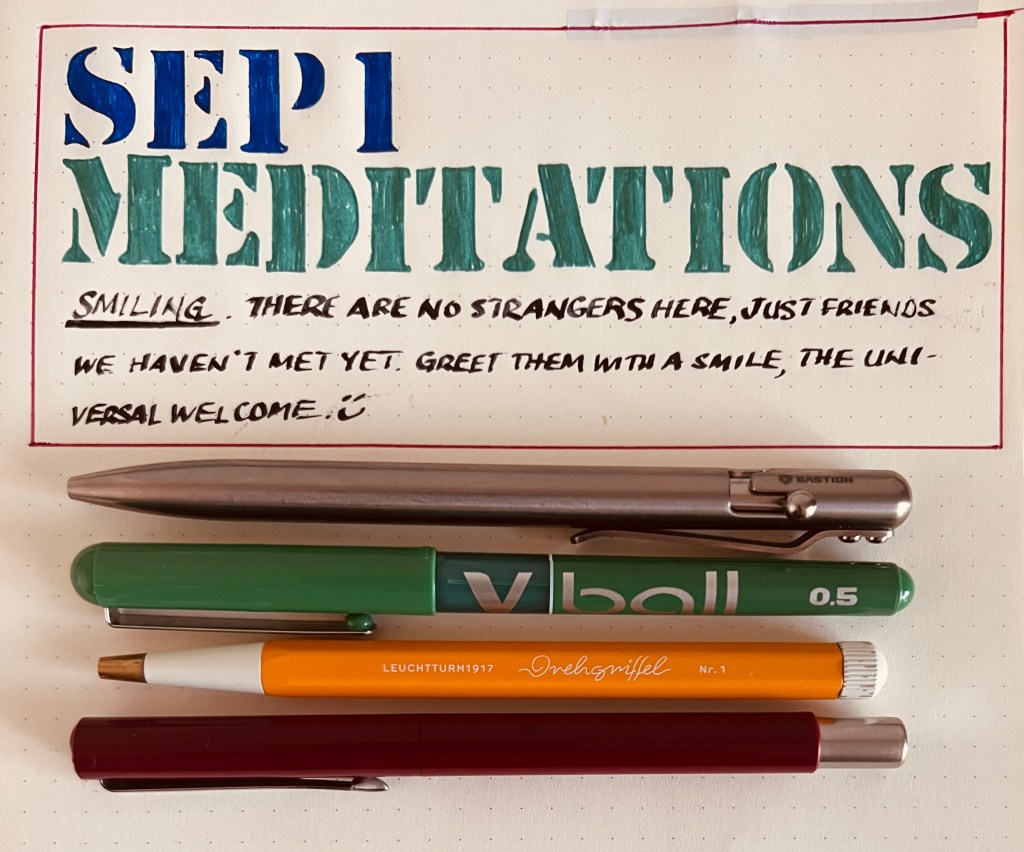 SEP 1
MEDITATIONS
SMILING. THERE ARE NO STRANGERS HERE, JUST FRIENDS
WE HAVEN'T MET YET. GREET THEM WITH A SMILE, THE UNI-
VERSAL WELCOME. :)
BASTION
V ball 0.5
LEUCHTTURM1917 Drehgriffel Nr. 1